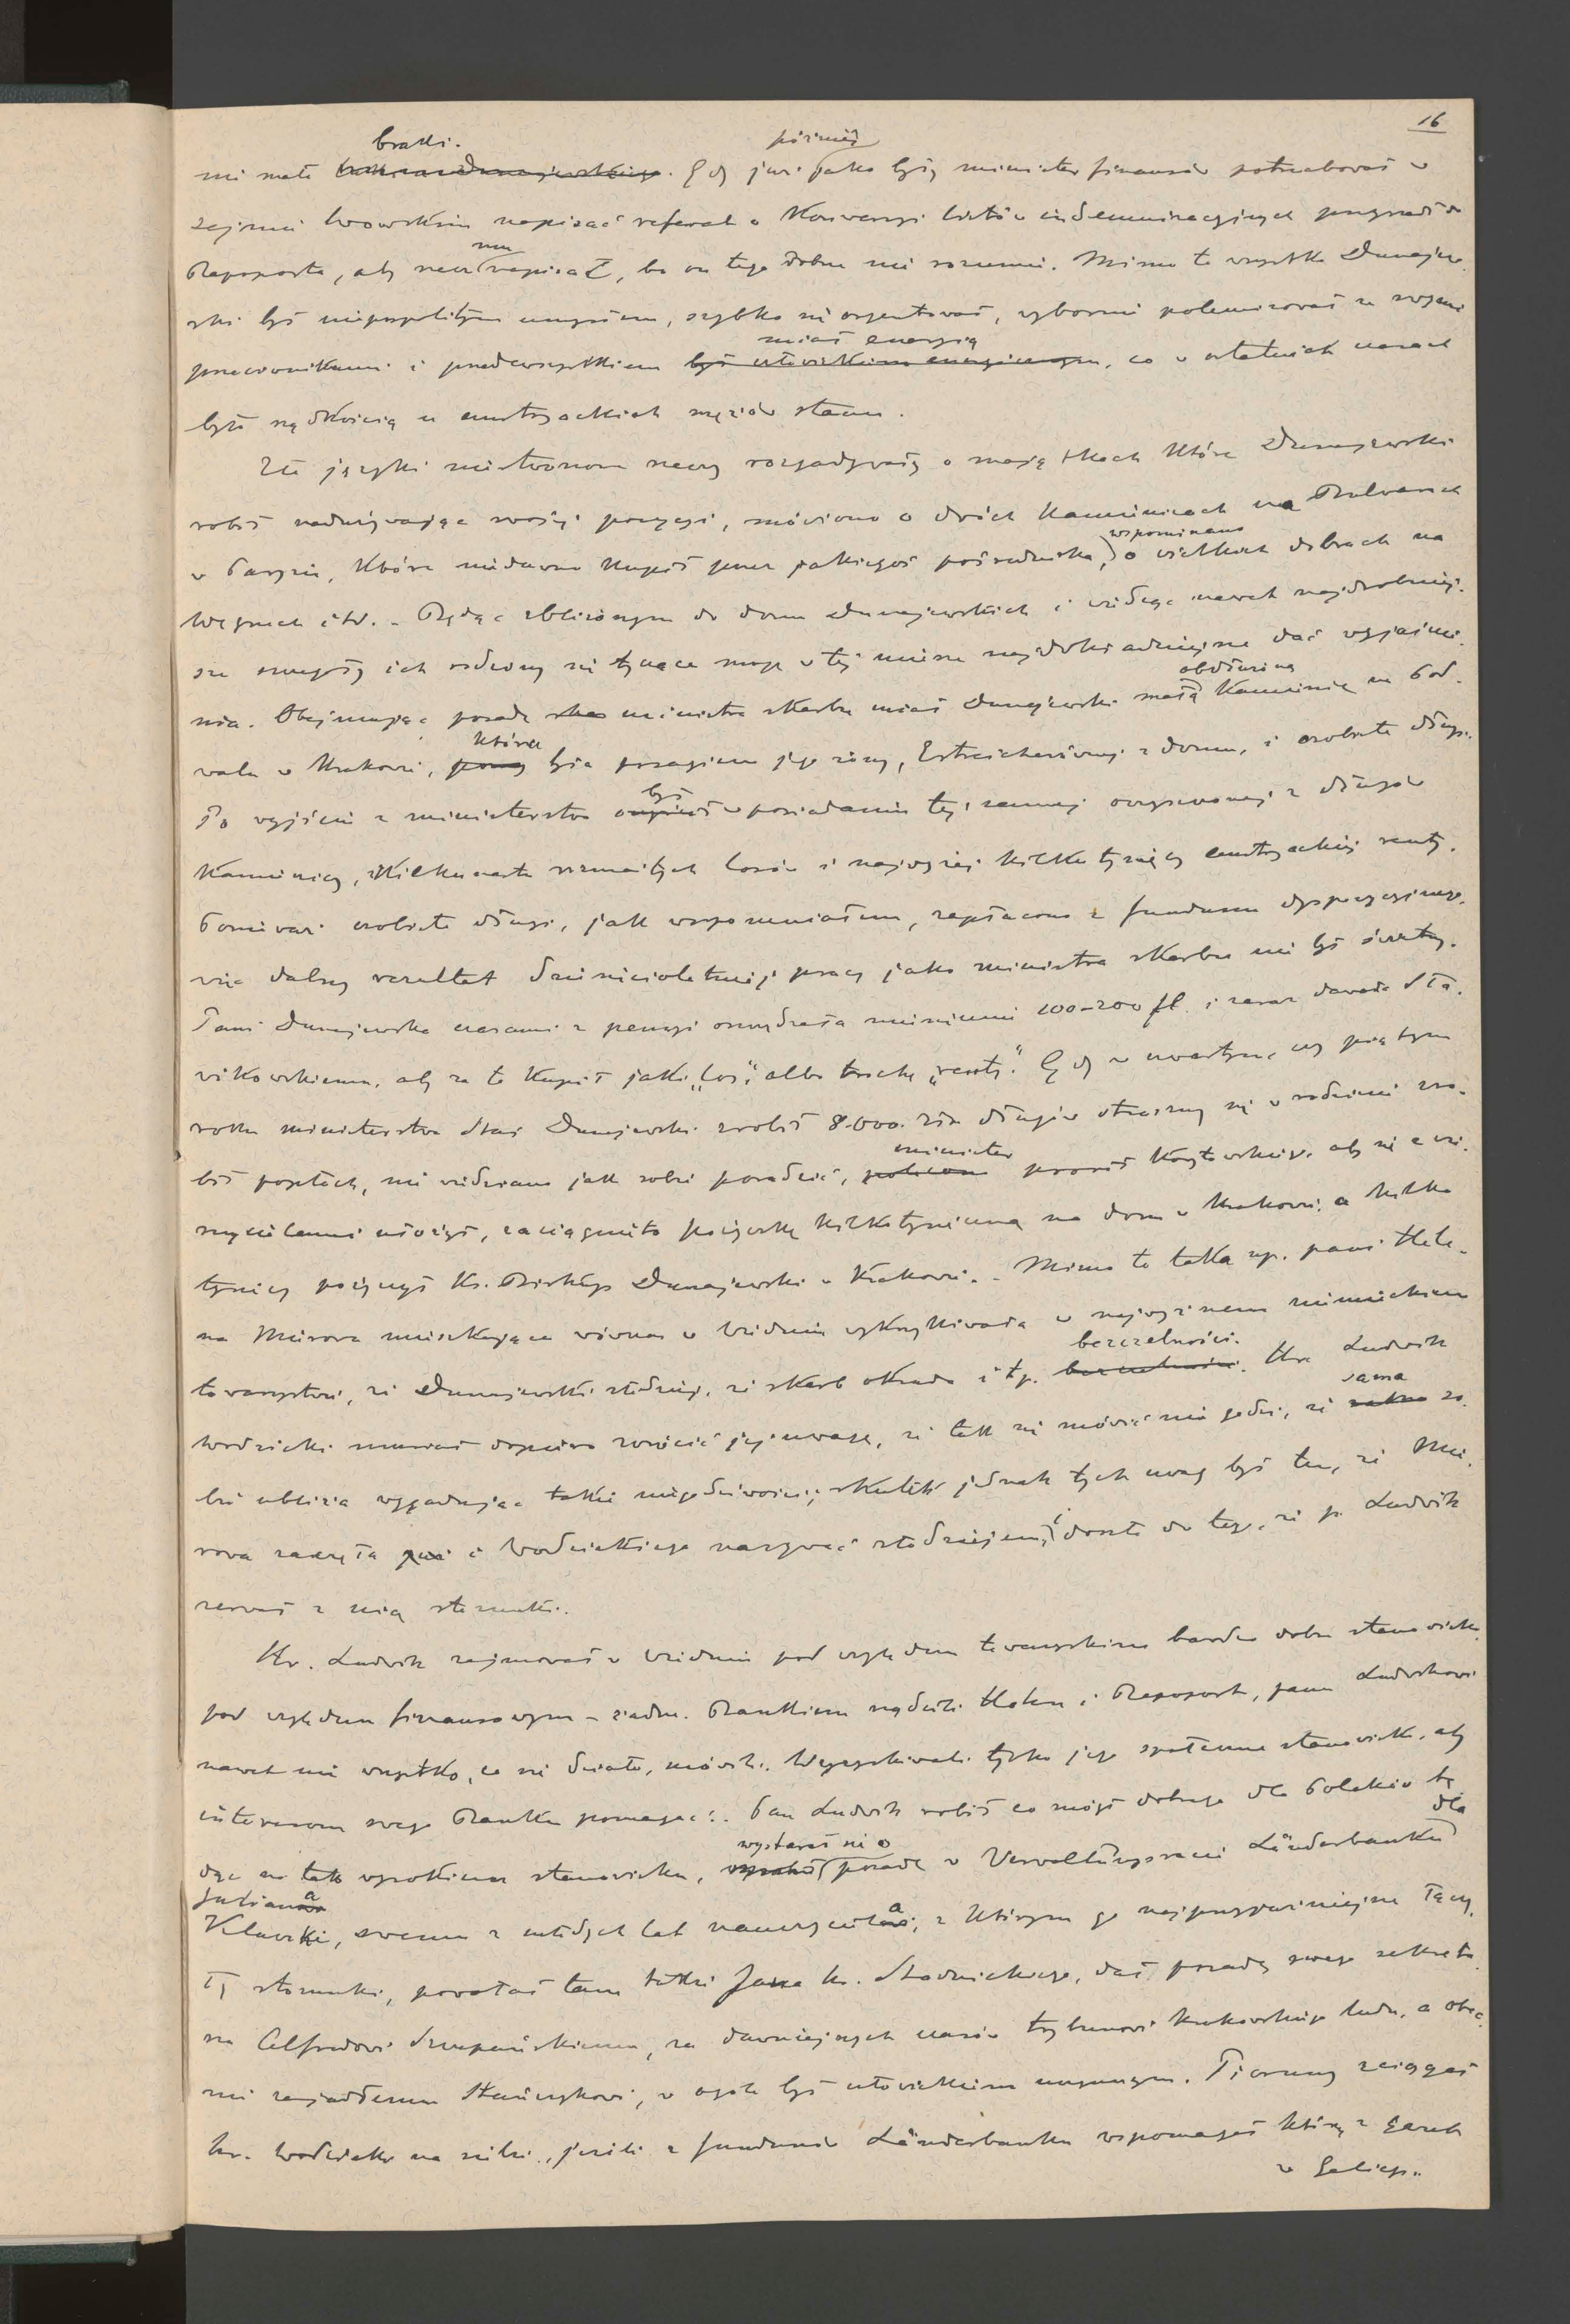 16
nie miał braki. Gdy już później jako były minister finansów potrzebował w
sejmie lwowskim napisać referat o konwersyi listów indemnizacyjnych przyszedł do
Rapoporta, aby mu napisał, bo on tego dobrze nie rozumie. Mimo to wszystko Dunajew
ski był niepospolitym umysłem, szybko się orjentował, wybornie polemizował ze swymi
przeciwnikami i przedewszystkiem miał energią, co w ostatnich czasach
było rzadkością u austryackich mężów stanu.
Złe języki niestworzone rzeczy rozgadywały o majątkach które Dunajewski
robił nadużywając swojej pozycyi, mówiono o dwóch kamienicach na Bulwarach
w Paryżu, które niedawno kupił przez jakiegoś pośrednika, wspominano o wielkich dobrach na
Węgrzech itd. - Będąc zbliżonym do domu Dunajewskich i widząc nawet najdrobniej-
sze ich rodziny się tyczące mogę w tej mierze najdokładniejsze dać wyjaśnie-
nia. Obejmując posadę ministra skarbu miał Dunajewski małą obdłużoną kamienicę na Pod-
walu w Krakowie, która była posagiem jego żony, Estreicherównej z domu, i osobiste długi.
Po wyjściu z ministerstwa był w posiadaniu tej samej oczyszczonej z długów
kamienicy, kilkunastu rozmaitych losów i najwyżej kilku tysięcy austryackiej renty.
Ponieważ osobiste długi, jak wspomniałem, zapłacono z funduszu dyspozycyjnego,
więc dalszy rezultat dziesięcioletniej pracy jako ministra skarbu nie był świetny.
Pani Dunajewska czasami z pensyi oszczędzała miesięcznie 100-200 fl. i zaraz dawała
aby za to kupił jaki „los", albo trochę „renty". Gdy w czwartym, czy piątym
roku ministerstwa Staś Dunajewski zrobił 8.000 złr długów straszny się w rodzinie zro-
bił popłoch, nie wiedziano jak sobie poradzić, minister prosił Korytowskiego, aby się z wie-
rzycielami ułożył, zaciągnięto pożyczkę kilkotysięczną na dom w Krakowie, a kilka
tysięcy pożyczył Ks. Biskup Dunajewski w Krakowie. - Mimo to taka np. pani Hele-
na Mierowa mieszkająca wówczas w Wiedniu wykrzykiwała w najwyższem niemieckiem
towarzystwie, że Dunajewski złodziej, że skarb okrada i tp. bezczelności. Hr. Ludwik
Wodzicki musiał dopiero zwrócić jej uwagę, że tak się mówić nie godzi, że sama so-
bie ubliża wygadując takie niegodziwości; skutek jednak tych uwag był ten, że Mie-
rowa zaczęła i Wodzickiego nazywać złodziejem, i doszło do tego, że p. Ludwik
zerwał z nią stosunki.
Hr. Ludwik zajmował w Wiedniu pod względem towarzyskim bardzo dobre stanowisko,
pod względem finansowym - żadne. Bankiem rządzili Hahn i Rapoport, panu Ludwikowi
nawet nie wszystko, co się działo, mówili. Wyzyskiwali tylko jego społeczne stanowisko, aby
interesom swego Banku pomagać. Pan Ludwik robił co mógł dobrego dla Polaków bę-
dąc na tak wysokiem stanowisku, wystarał się o posadę w Verwaltungsracie Länderbanku dla
Juliana
Klaczki, swego z młodych lat nauczyciela, z którym go najprzyjaźniejsze łączy-
ły stosunki, powołał tam także Jana hr. Stadnickiego, dał posadę swego sekreta-
rza Alfredowi Szczepańskiemu, za dawniejszych czasów trybunowi krakowskiego ludu, a obec-
nie zajadłemu Stańczykowi, w ogóle był człowiekiem uczynnym. Pioruny ściągał
hr. Wodzicki na siebie, jeżeli z funduszów Länderbanku wspomagał którą z gazet
w Galicyi.